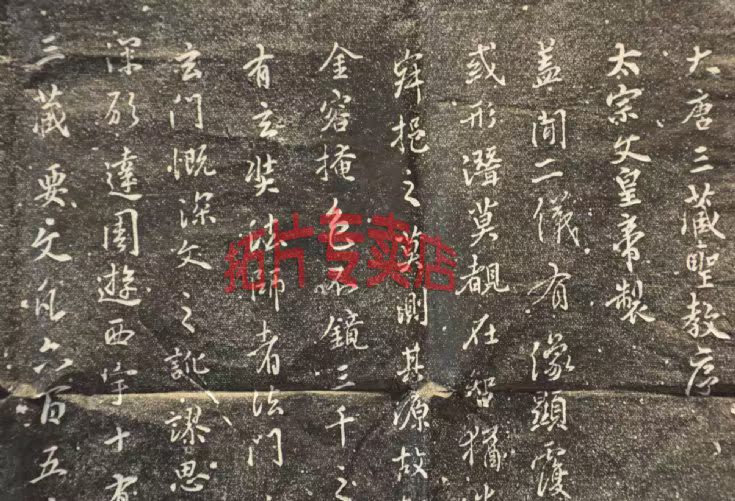 大唐三藏聖教序
太宗文皇帝製
蓋聞二儀有像顯覆
或形潛莫覩在智猶
寂挹之莫測其源故
金容掩色不鏡三千之
有玄奘法師者法門
玄門慨深文之訛謬思
深願達周遊西宇十有
三藏要文凡六百五
拓片专卖店